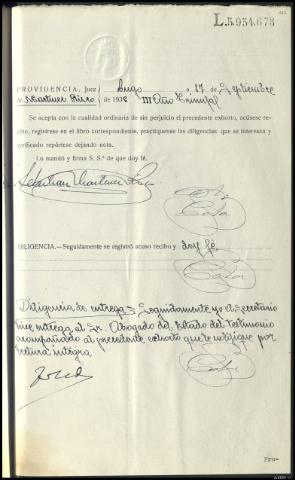 L.5.954.673
PROVIDENCIA, Juez Lugo 17 de Septiembre
Sr. Martinez Risco de 1938 III Año Triunfal
Se acepta con la cualidad ordinaria de sin perjuicio el precedente exhorto, acúsese reci-
bo, regístrese en el libro correspondiente, practíquense las diligencias que se interesa y
verificado repórtese dejando nota.
Lo mandó y firma S. S.ª de que doy fé.
Sebastian Martinez Risco
DILIGENCIA.—Seguidamente se registró acuso recibo y doy fé
Diligencia de entrega = Seguidamente yo Secretario
hice entrega al Sr. Abogado del Estado del testimonio
acompañado al precedente exhorto que le notifique por
lectura integra
Pro-